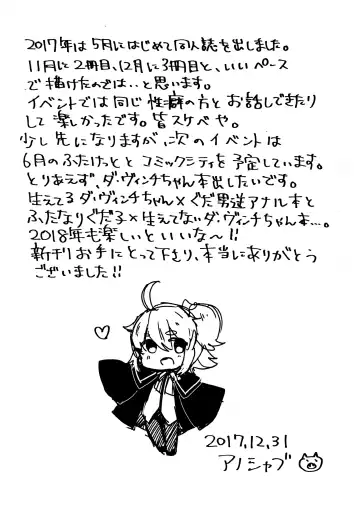 2017年は5月にはじめて同人誌を出しました。
11月に2冊目、12月に3冊目と、いいペース
で描けたのでは‥と思います。
イベントでは同じ性癖の方とお話しできたり
して楽しかったです。皆スケベや。
少し先になりますが、次のイベントは
6月のふたけっととコミックシティを予定しています。
とりあえず、ダ・ヴィンチちゃん本出したいです。
生えてるダ・ヴィンチちゃん×ぐだ男逆アナル本と
ふたなりぐだ子×生えてないダ・ヴィンチちゃん本…。
2018年も楽しいといいな〜!!
新刊お手にとって下さり、本当にありがとう
ございました!!
2017.12.31
アノシャブ